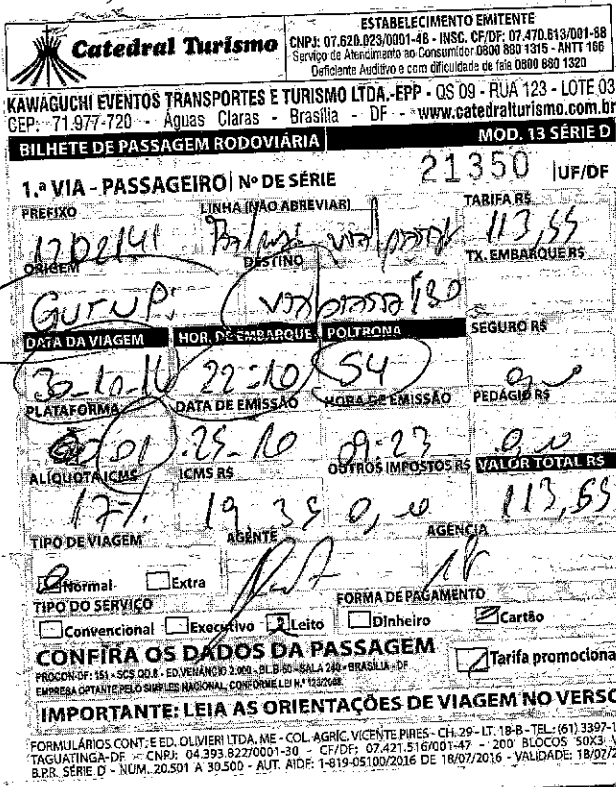 ESTABELECIMENTO EMITENTE
Catedral Turismo
CNPJ: 07.620.023/0001-48 - INSC. CF/DF: 07.470.613/001-88
Serviço de Atendimento ao Consumidor 0800 880 1315 - ANTT 166
Deficiente Auditivo e com dificuldade de fala 0800 880 1320
KAWAGUCHI EVENTOS TRANSPORTES E TURISMO LTDA.-EPP - QS 09 - RUA 123 - LOTE 03
CEP: 71.977-720 - Águas Claras - Brasília - DF - www.catedralturismo.com.br
BILHETE DE PASSAGEM RODOVIÁRIA MOD. 13 SÉRIE D
1.ª VIA - PASSAGEIRO Nº DE SÉRIE 21350 UF/DF
PREFIXO LINHA (NÃO ABREVIAR) TARIFA R$
113,55
ORIGEM DESTINO TX. EMBARQUE R$
Gurupi
DATA DA VIAGEM HOR. DE EMBARQUE POLTRONA SEGURO R$
30-10-16 22:10 54
PLATAFORMA DATA DE EMISSÃO HORA DE EMISSÃO PEDÁGIO R$
01 25-10 09:23
ALÍQUOTA ICMS ICMS R$ OUTROS IMPOSTOS R$ VALOR TOTAL R$
17% 19,35 113,55
TIPO DE VIAGEM AGENTE AGENCIA
Normal Extra
TIPO DO SERVIÇO FORMA DE PAGAMENTO
Convencional Executivo Leito Dinheiro Cartão
CONFIRA OS DADOS DA PASSAGEM Tarifa promociona
PROCON-DF: 151 - SCS QD.8 - ED. VENÂNCIO 2.000 - BL.B-60 - SALA 240 - BRASÍLIA - DF
EMPRESA OPTANTE PELO SIMPLES NACIONAL, CONFORME LEI N.º 123/2006
IMPORTANTE: LEIA AS ORIENTAÇÕES DE VIAGEM NO VERSO
FORMULÁRIOS CONT. E ED. OLIVIERI LTDA, ME - COL. AGRÍC. VICENTE PIRES - CH. 29 - LT. 18-B - TEL.: (61) 3397-1
TAGUATINGA-DF - CNPJ: 04.393.822/0001-30 - CF/DF: 07.421.516/001-47 - 200 BLOCOS 50X3
B.P.R. SÉRIE D - NUM. 20.501 A 30.500 - AUT. AIDF: 1-819-05100/2016 DE 18/07/2016 - VALIDADE: 18/07/2